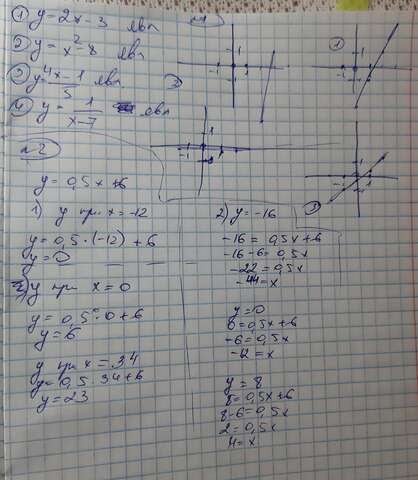 ① y = 2x - 3 явл
② y = x² - 8 явл
③ y = (4x - 1)/5 явл
④ y = 1/(x - 7) явл
①
②
③
-1 1
1
-1 1
1
-1 1
1
-1 1
1
n-2
y = 0,5x + 6
1) y при x = -12
y = 0,5 · (-12) + 6
y = 0
2) y при x = 0
y = 0,5 · 0 + 6
y = 6
y при x = 34
y = 0,5 · 34 + 6
y = 23
2) y = -16
-16 = 0,5x + 6
-16 - 6 = 0,5x
-22 = 0,5x
-44 = x
y = 0
0 = 0,5x + 6
-6 = 0,5x
-12 = x
y = 8
8 = 0,5x + 6
8 - 6 = 0,5x
2 = 0,5x
4 = x